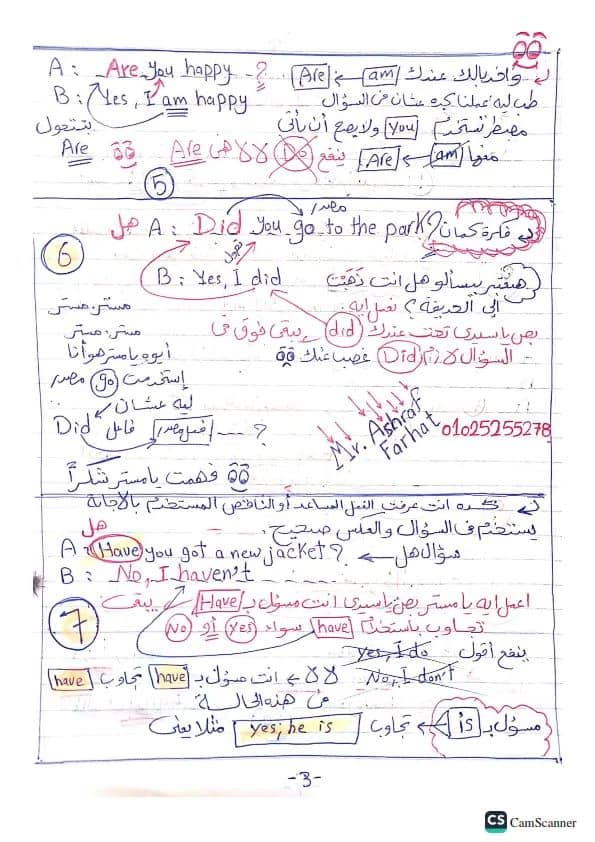 A : Are you happy ?
واخد بالك عندك am ← Are
B : Yes, I am happy
طب ليه عملنا كده عشان في السؤال
مضطر تستخدم you ولا يصح أن يأتي
بتتحول
منها am ← Are
ينفع Do لا لا هي Are
Are
5
فكرة كمان
مصدر
هل A : Did you go to the park?
6
B : Yes, I did
هنعتبر بيسألو هل انت ذهبت
الي الحديقة؟ نعمل ايه
مستر. مستر
بص ياسيدي تحت عندك did يبقى فوق في
مستر. مستر
السؤال لازم Did غصب عنك
أيوه يا مستر هو أنا
إستخدمت go مصدر
ليه عشان
Did فاعل فعل مصدر ---- ?
Mr. Ashraf Farhat
01025255278
فهمت يا مستر شكراً
كده انت عرفت الفعل المساعد أو الناقص المستخدم بالاجابة
يستخدم في السؤال والعكس صحيح.
هل
A : Have you got a new jacket?
سؤال هل
B : No, I haven't
7
اعمل ايه يا مستر بص ياسيدي انت مسؤل بـ Have يبقى
تجاوب باستخدام have سواء yes أو No
ينفع أقول yes, I do
No, I don't
لا لا انت مسؤل بـ have تجاوب have
في هذه الحالة
مسؤل بـ is ← تجاوب yes, he is مثلا يعني
-3-
CS CamScanner